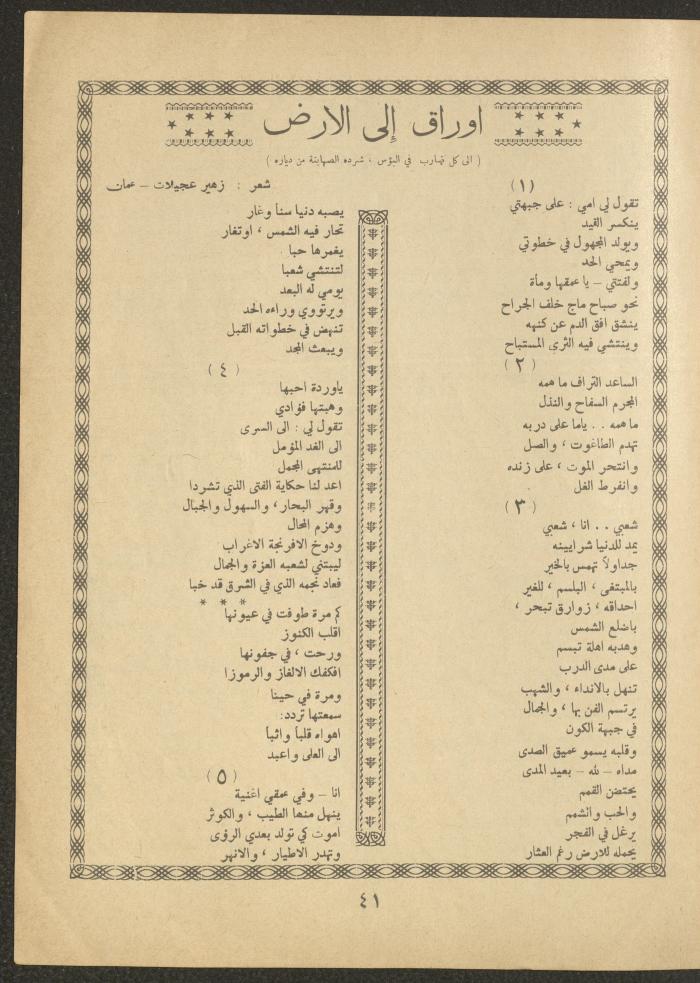 اوراق إلى الارض
( الى كل نهارب في البؤس ، شرده الصهاينة من دياره )
شعر : زهير عجيلات – عمان
( ١ )
تقول لي امي : على جبهتي
ينكسر القيد
ويولد المجهول في خطوتي
ويمحي الحد
ولفتتي – يا عمقها ومأة
نحو صباح ماج خلف الجراح
ينشق افق الدم عن كنهه
وينتشي فيه الثري المستباح
( ٢ )
الساعد النزاف ما همه
المجرم السفاح والنذل
ما همه . . ياما على دربه
تهدم الطاغوت ، والصل
وانتحر الموت ، على زنده
وانفرط الغل
( ٣ )
شعبي . . انا ، شعبي
يمد للدنيا شرايينه
جداولاً تهمس بالخير
بالمبتغى ، البلسم ، للغير
احداقه ، زوارق تبحر ،
باضلع الشمس
وهدبه اهلة تبسم
على مدى الدرب
تنهل بالانداء ، والشهب
يرتسم الفن بها ، والجمال
في جبهة الكون
وقلبه يسمو عميق الصدى
مداه – لله – بعيد المدى
يحتضن القمم
والحب والشمم
يرغل في الفجر
يحمله للارض رغم العثار
يصبه دنيا سنأ وغار
تحار فيه الشمس ، اوتغار
يغمرها حبا
لتنتشي شعبا
يومي له البعد
ويرتووي وراءه الحد
تنهض في خطواته القبل
ويبعث المجد
( ٤ )
ياوردة احبها
وهبتها فؤادي
تقول لي : الى السرى
الى الغد المؤمل
للمنتهى المجمل
اعد لنا حكاية الفتى الذي تشردا
وقهر البحار ، والسهول والجبال
وهزم المحال
ودوخ الافرنجة الاغراب
ليبتني لشعبه العزة والجمال
فعاد نجمه الذي في الشرق قد خبا
* * *
كم مرة طوفت في عيونها
اقلب الكنوز
ورحت ، في جفونها
افكفك الالغاز والرموزا
ومرة في حينا
سمعتها تردد:
اهواه قلباً واثباً
الى العلى واعبد
( ٥ )
انا – وفي عمقي اغنية
ينهل منها الطيب ، والكوثر
اموت كي تولد بعدي الرؤى
وتهدر الاطيار ، والانهر
٤١